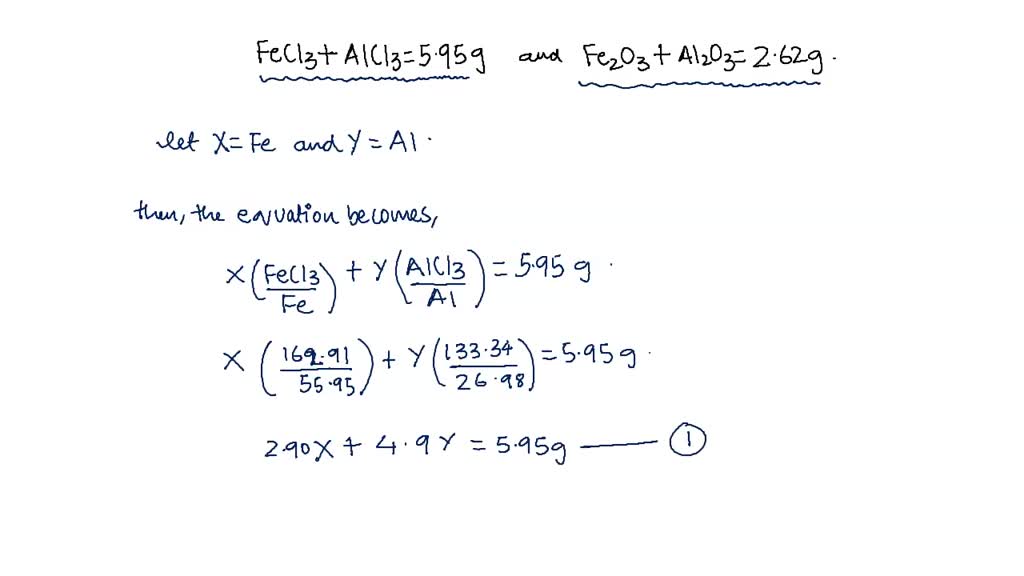 FeCl3 + AlCl3 = 5.95g and Fe2O3 + Al2O3 = 2.62g.
let X = Fe and Y = Al.
then, the equation becomes,
X (FeCl3/Fe) + Y (AlCl3/Al) = 5.95 g
X (162.91/55.95) + Y (133.34/26.98) = 5.95g
2.90X + 4.9Y = 5.95g —— ①